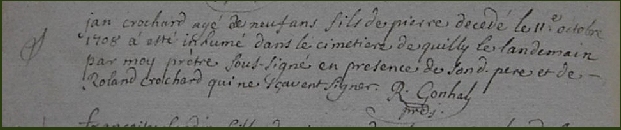 jan crochard agé de neuf ans fils de pierre decedé le 11e octobre
1708 a esté inhumé dans le cimetiere de quilly le landemain
par moy prêtre sous-signé en presence de sond. pere et de
Roland crochard qui ne sçavent signer. R. Conhal